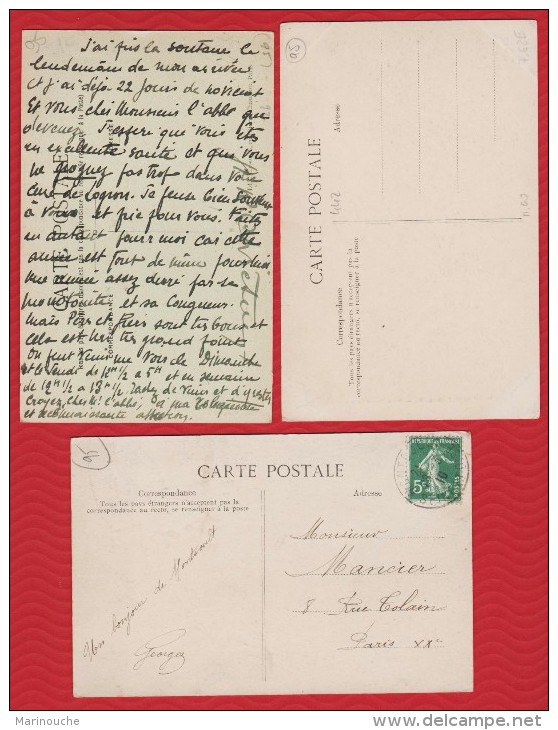 J'ai pris la soutane le
lendemain de mon arrivée
et j'ai déjà 22 jours de noviciat
Et vous cher Monsieur l'abbé que
devenez J'espère que vous êtes
en excellente santé et que vous
ne pas trop dans votre
cure de Je pense bien souvent
à vous et prie pour vous. Faites
en autant pour moi car cette
année est tout de même pour moi
une année assez dure par sa
monotonie et sa longueur.
Mais Père et frères sont très bons et
cela est un très grand point
On peut venir me voir le Dimanche
et le Jeudi de 12h 1/2 à 5h et en semaine
de 12h 1/2 à 13h 1/2. Tachez de venir et d'y rester
Croyez, cher M. l'abbé, à ma
et reconnaissante affection
CARTE POSTALE
05
CARTE POSTALE
Adresse
Correspondance
Tous les pays étrangers n'acceptent pas la
correspondance au recto, se renseigner à la poste
05
CARTE POSTALE
Correspondance
Tous les pays étrangers n'acceptent pas la
correspondance au recto, se renseigner à la poste
Adresse
REPUBLIQUE FRANÇAISE
5c
POSTES
Un bonjour de
Georges
Monsieur
Mancier
8 Rue Tolain
Paris XXe
Marinouche
www.delcampe.net